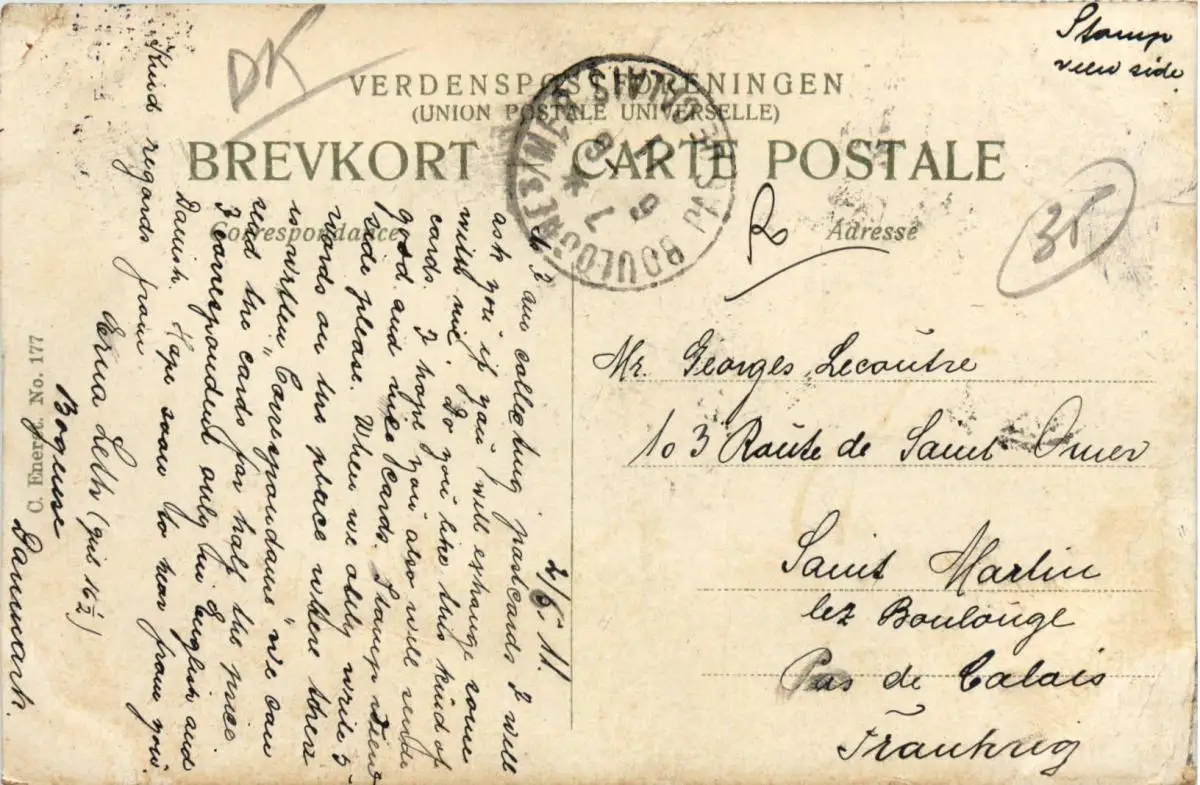 Stamp
view side
DK
VERDENSPOSTFORENINGEN
(UNION POSTALE UNIVERSELLE)
BREVKORT CARTE POSTALE
Correspondance
Adresse
BOULOGNE S/MER PAS DE CALAIS
35
Mr. Georges Lecoutre
103 Route de Saint Omer
Saint Martin
lez Boulouge
Pas de Calais
Frankrig
2/6 11.
As I am collecting postcards I will
ask you if you will exhange some
with me. Do you like this kind of
cards. I hope you also will sende
good and nice cards. Stamp view
side please. When we only write 5
words on the place where there
is written "Correspondans" we can
send the cards for half the price
I correspondent only in English and
Danish. Hope soon to hear from you.
Kind regards from
Erna Leth (girl 16½)
Bogense
Danmark.
C. Eneret. No. 177